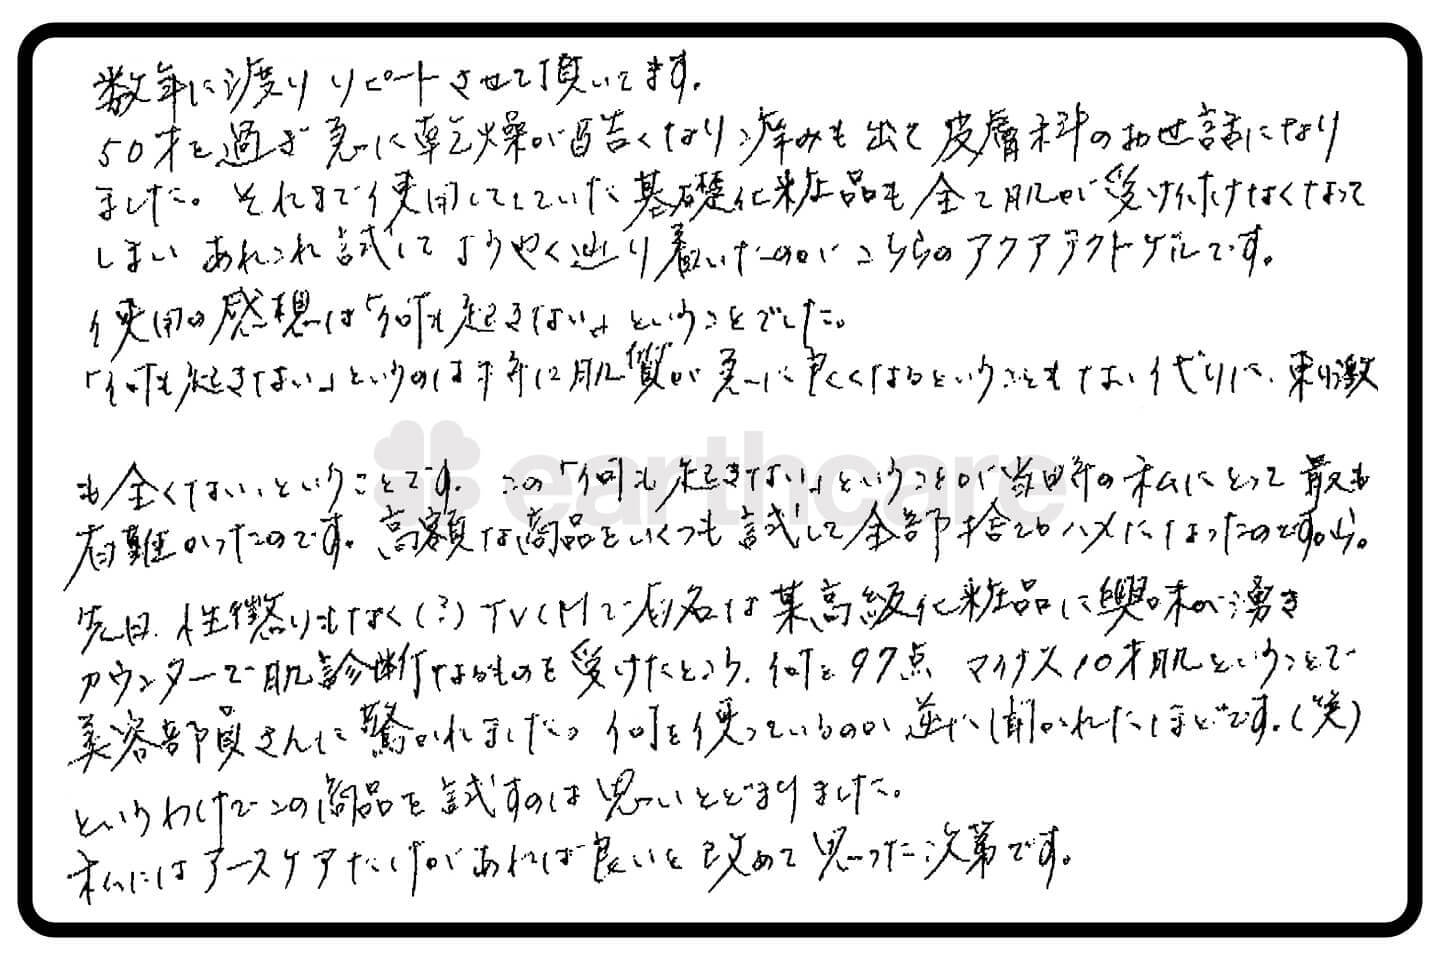 数年に渡り リピートさせて頂いてます。
50才を過ぎ 急に乾燥が酷くなり 痒みも出て 皮膚科のお世話になり
ました。それまで使用してしていた基礎化粧品も 全て肌が受け付けなくなって
しまい あれこれ試して ようやく辿り着いたのが こちらのアクアテクトゲルです。
使用の感想は「何も起きない」ということでした。
「何も起きない」というのは 肌質が急に良くなるということもない代りに、刺激
earthcare
も全くない、ということです。この「何も起きない」ということが当時の私にとって 最も
有難かったのです。高額な商品をいくつも試して全部捨てるハメになったのですから。
先日、性懲りもなく(?) TVCMで有名な某高級化粧品に興味が湧き
カウンターで肌診断なるものを受けたところ、何と97点 マイナス10才肌ということで
美容部員さんに驚かれました。何を使っているのか 逆に聞かれたほどです。(笑)
というわけでこの商品を試すのは思いとどまりました。
私にはアースケアだけがあれば良いと改めて思った次第です。